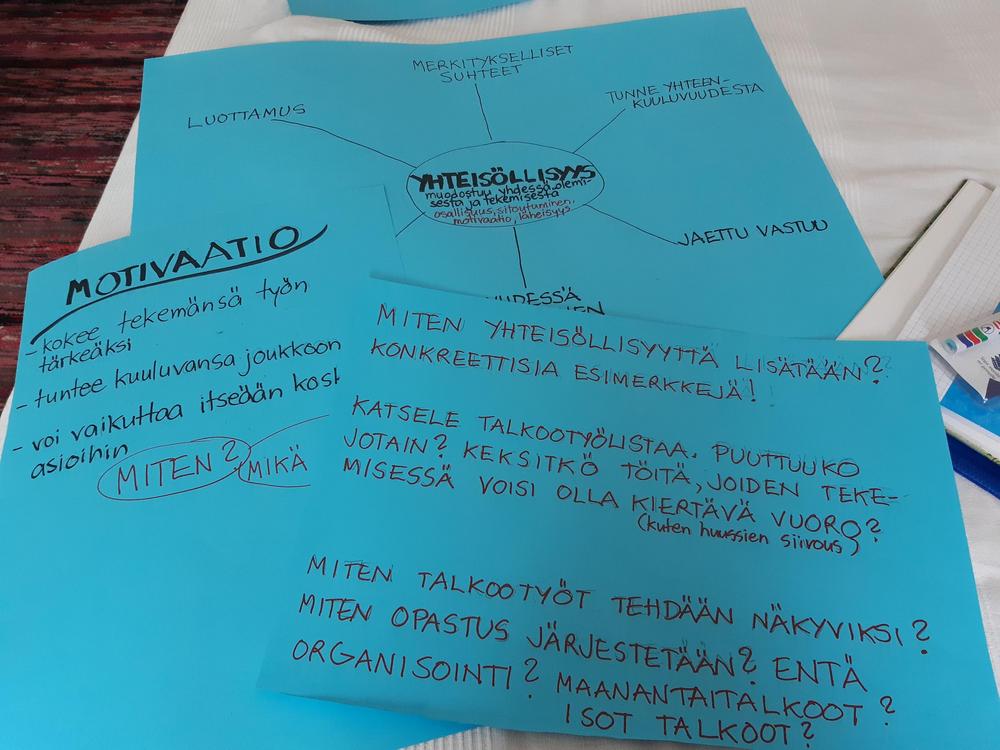 MERKITYKSELLISET
SUHTEET
LUOTTAMUS
TUNNE YHTEEN-
KUULUVUUDESTA
YHTEISÖLLISYYS
muodostuu yhdessä olemi-
sesta ja tekemisestä
osallisuus, sitoutuminen,
motivaatio, läheisyys
JAETTU VASTUU
MOTIVAATIO
- kokee tekemänsä työn
tärkeäksi
- tuntee kuuluvansa joukkoon
- voi vaikuttaa itseään
asioihin
MITEN?
MIKÄ
MITEN YHTEISÖLLISYYTTÄ LISÄTÄÄN?
KONKREETTISIA ESIMERKKEJÄ!
KATSELE TALKOOTYÖLISTAA. PUUTTUUKO
JOTAIN? KEKSITKÖ TÖITÄ, JOIDEN TEKE-
MISESSÄ VOISI OLLA KIERTÄVÄ VUORO?
(kuten huussien siivous)
MITEN TALKOOTYÖT TEHDÄÄN NÄKYVIKSI?
MITEN OPASTUS JÄRJESTETÄÄN? ENTÄ
ORGANISOINTI? MAANANTAITALKOOT?
ISOT TALKOOT?